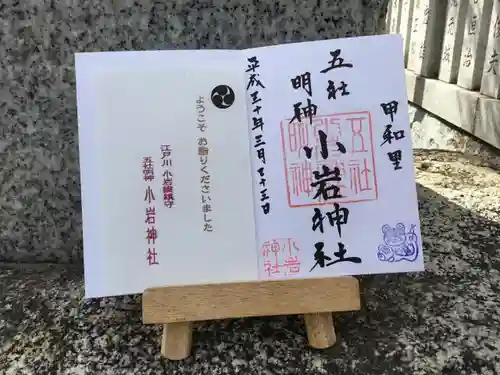 甲和里
五社
明神
小岩神社
平成三十年三月二十三日
小岩
神社
ようこそ お詣りくださいました
江戸川 小岩総鎮守
五社明神 小岩神社